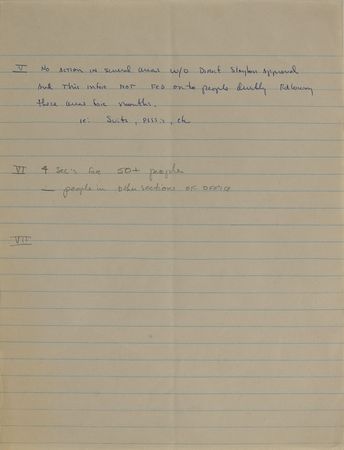 V No action in several areas w/o Direct Slayton Approval
and this info NOT FED on to people directly following
these areas for months.
ie: Suits, PSSS's, etc
VI 4 Sec's for 50+ people
— people in other sections OF OFFICE
VII